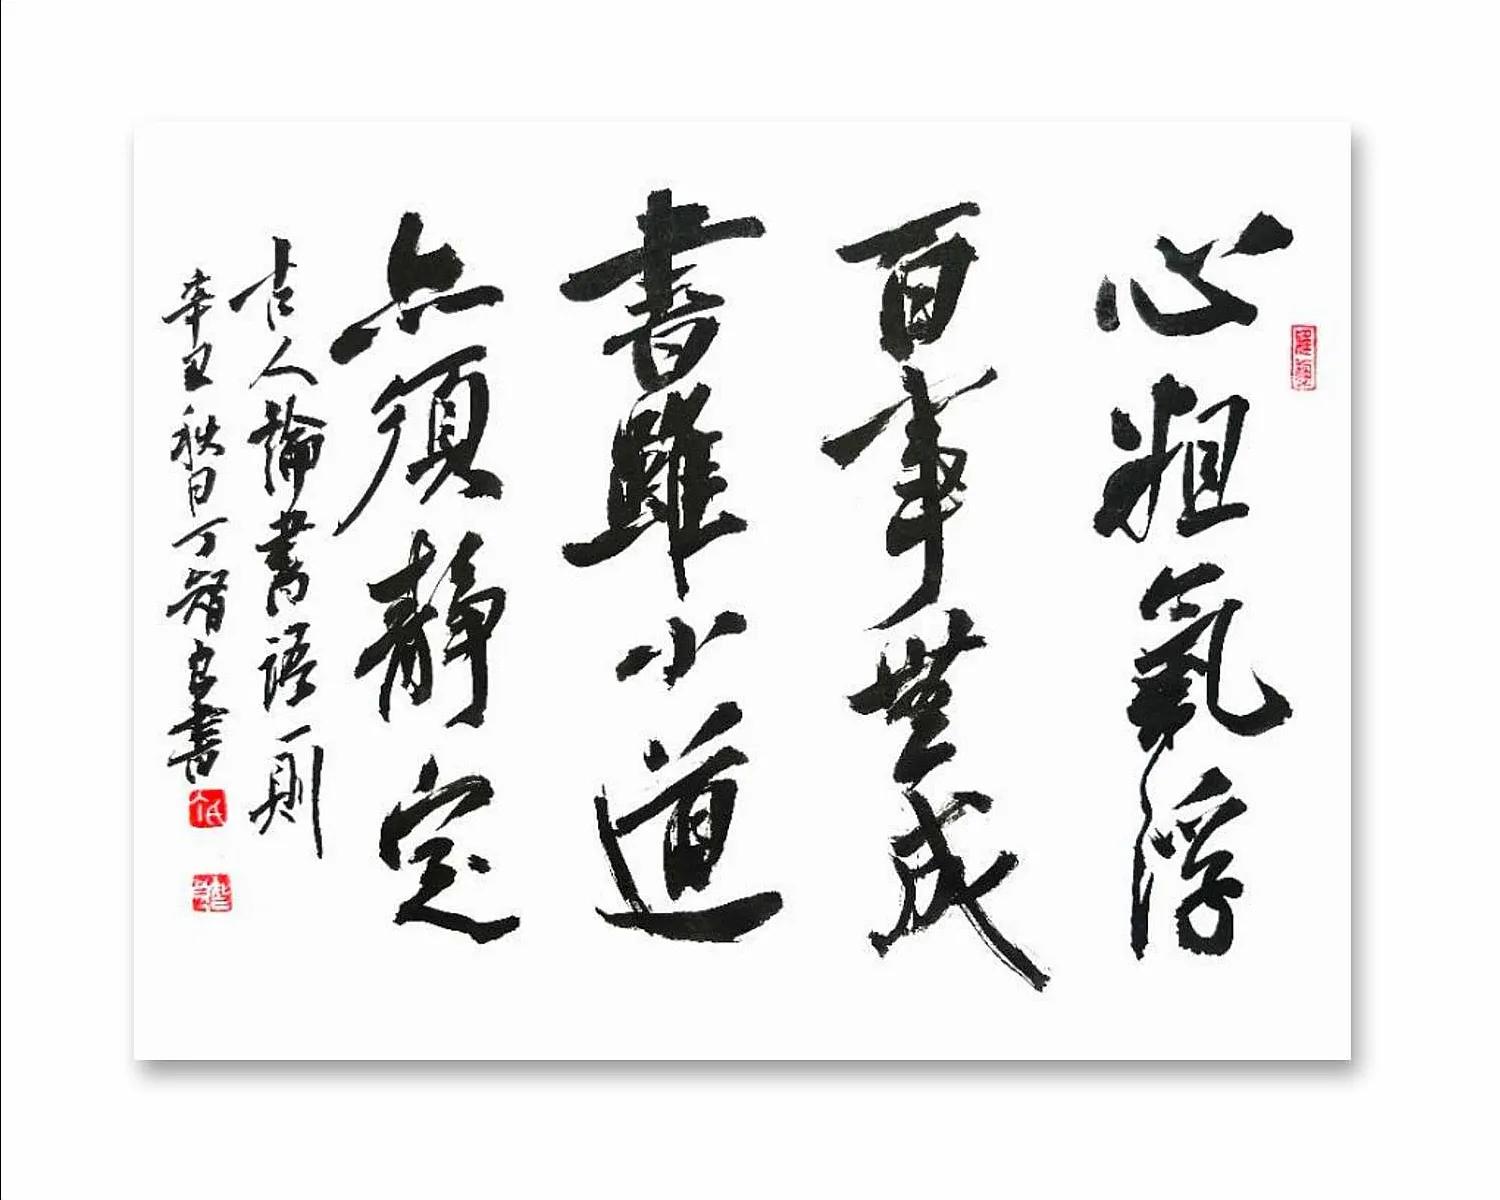 心粗氣浮
百事無成
書雖小道
亦須靜定
古人論書語一則
辛丑秋日丁智書